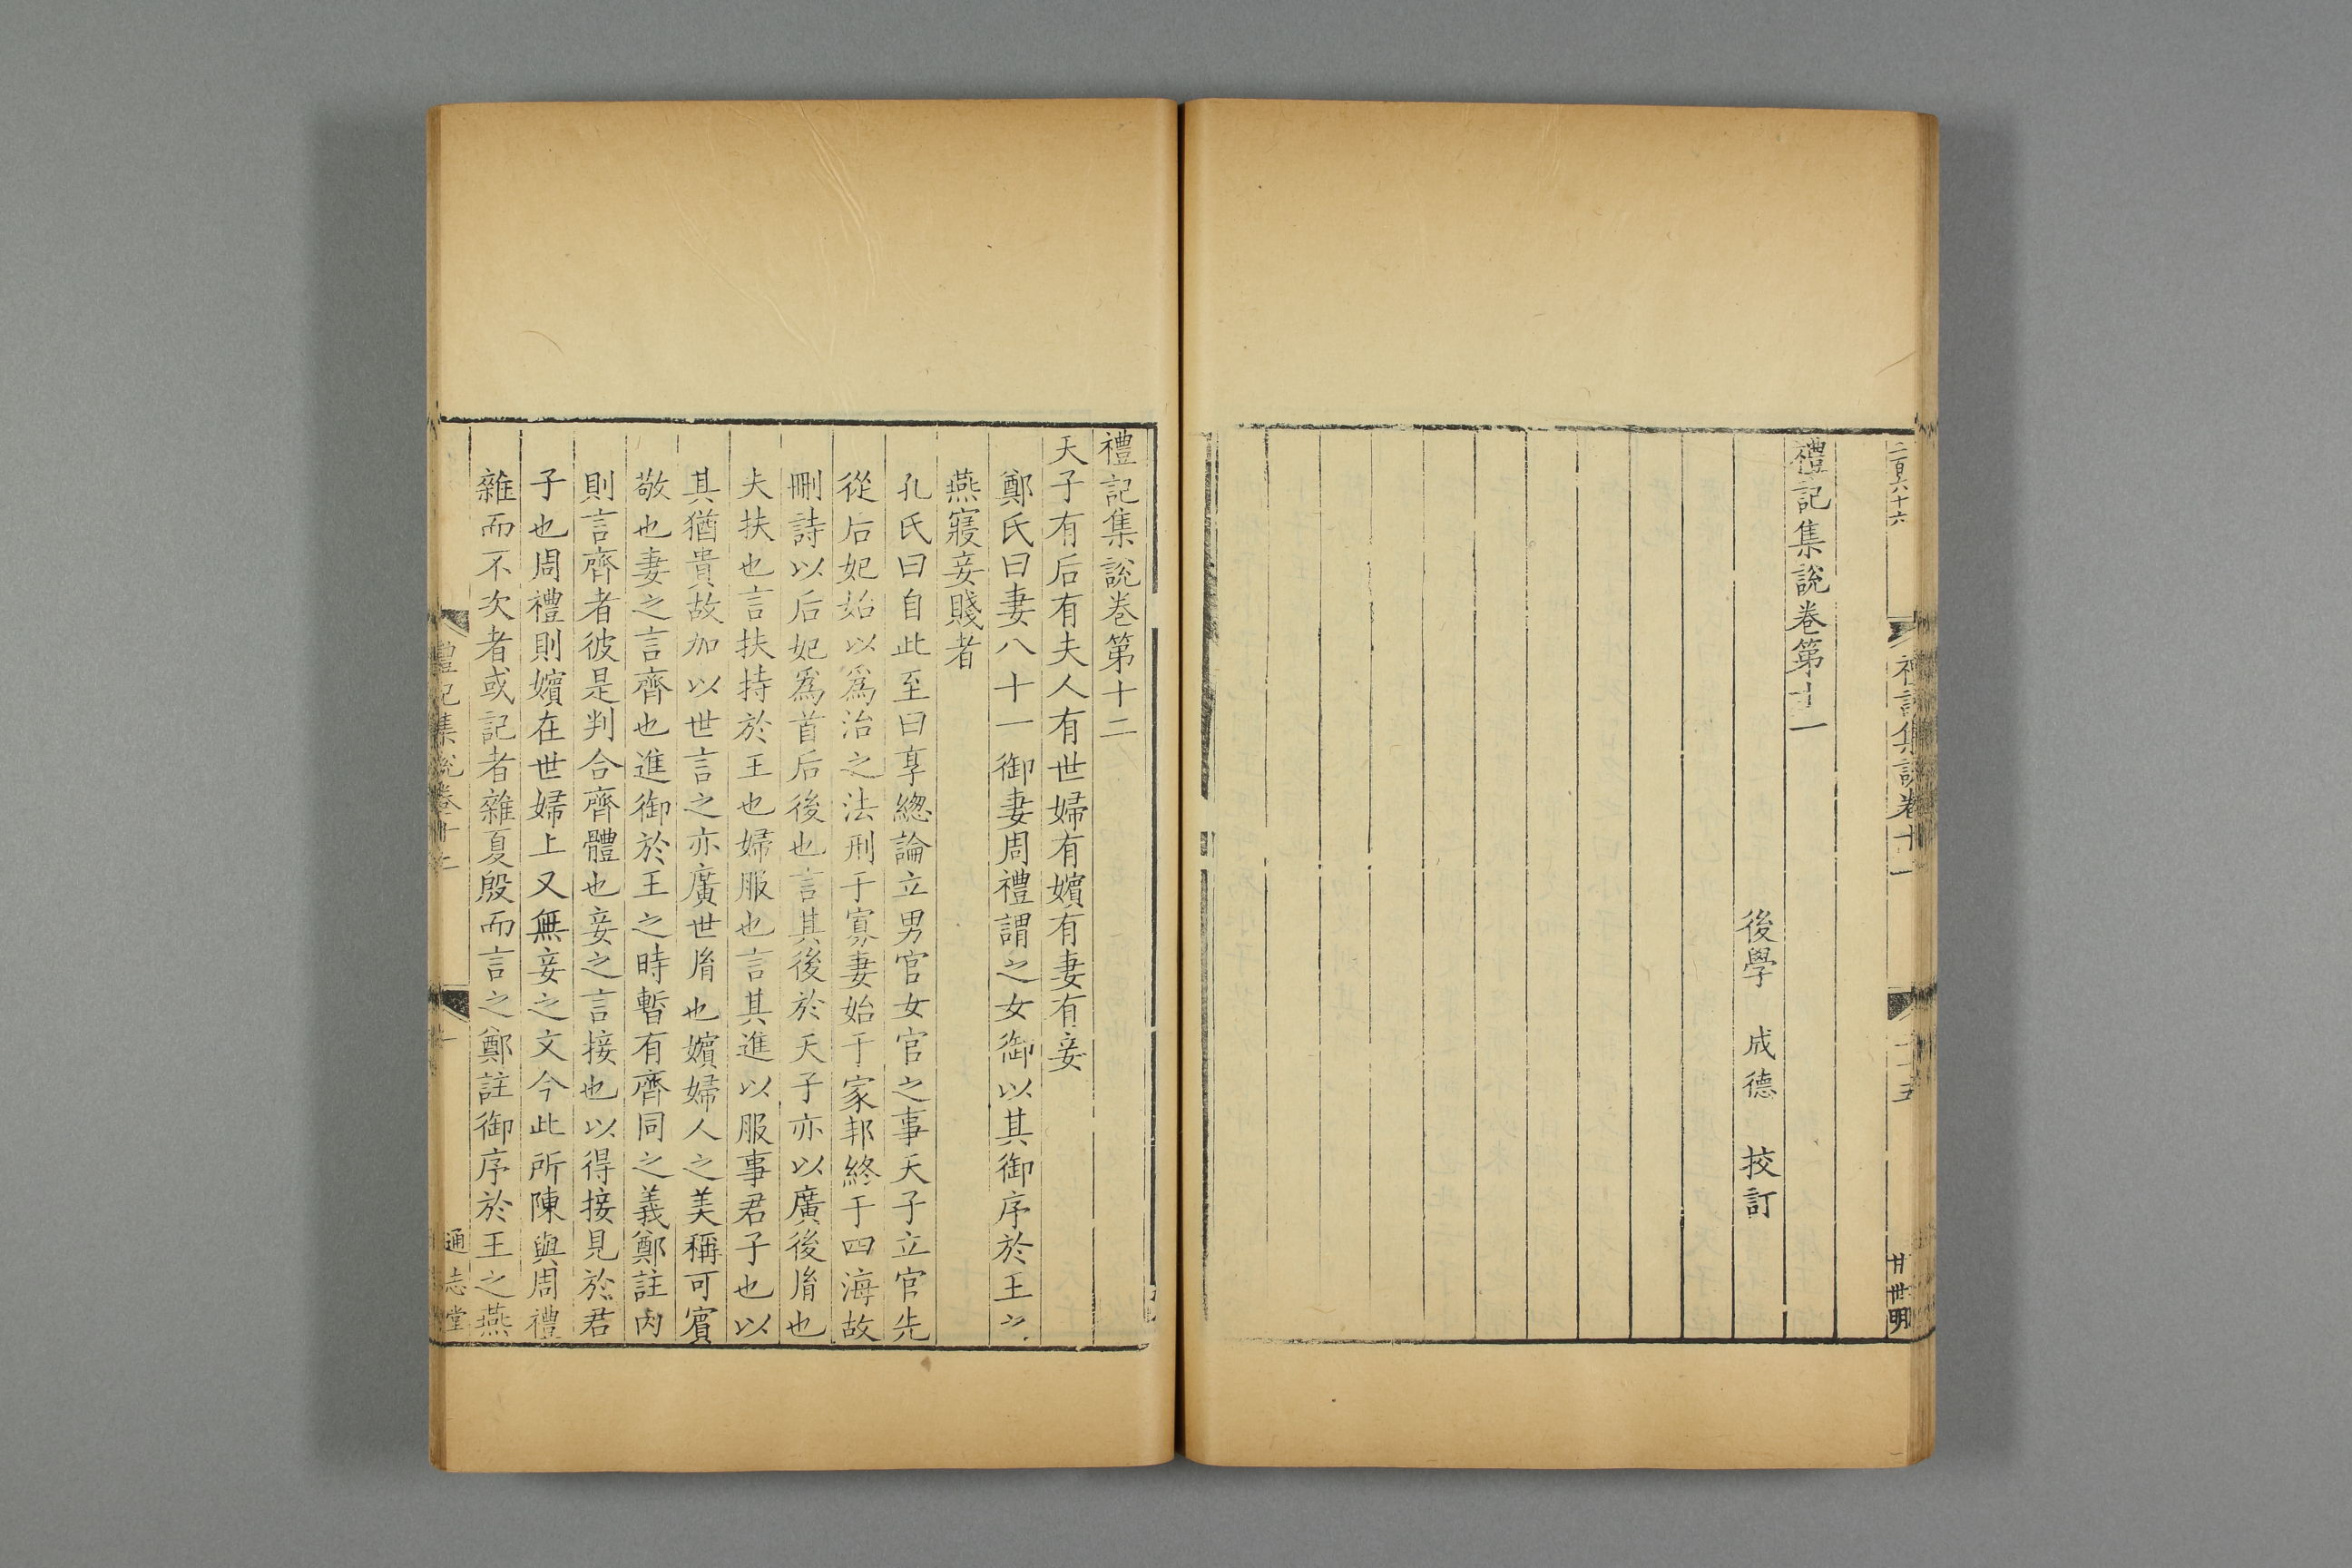 二百六十六
禮記集說卷十一
二十五
甘世明
禮記集說卷第十一
後學 成德 挍訂
禮記集說卷第十二
天子有后有夫人有世婦有嬪有妻有妾
鄭氏曰妻八十一御妻周禮謂之女御以其御序於王之
燕寢妾賤者
孔氏曰自此至曰享總論立男官女官之事天子立官先
從后妃始以爲治之法刑于寡妻始于家邦終于四海故
刪詩以后妃爲首后後也言其後於天子亦以廣後胤也
夫扶也言扶持於王也婦服也言其進以服事君子也以
其猶貴故加以世言之亦廣世胤也嬪婦人之美稱可賓
敬也妻之言齊也進御於王之時暫有齊同之義鄭註內
則言齊者彼是判合齊體也妾之言接也以得接見於君
子也周禮則嬪在世婦上又無妾之文今此所陳與周禮
雜而不次者或記者雜夏殷而言之鄭註御序於王之燕
禮記集說卷十二
通志堂